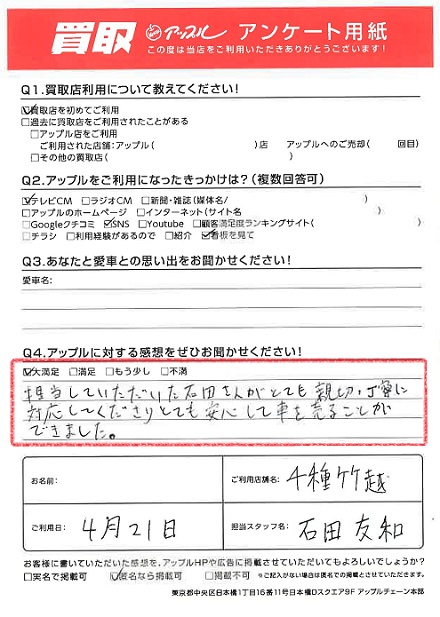 買取 アップル アンケート用紙
この度は当店をご利用いただきありがとうございます!
Q1.買取店利用について教えてください!
☑買取店を初めてご利用
□過去に買取店をご利用されたことがある
□アップル店をご利用
ご利用された店舗:アップル( )店 アップルへのご売却( 回目)
□その他の買取店( )
Q2.アップルをご利用になったきっかけは?(複数回答可)
☑テレビCM □ラジオCM □新聞・雑誌(媒体名/ )
□アップルのホームページ □インターネット(サイト名 )
□Googleクチコミ ☑SNS □Youtube □顧客満足度ランキングサイト( )
□チラシ □利用経験があるので □紹介 ☑看板を見て
Q3.あなたと愛車との思い出をお聞かせください!
愛車名:
Q4.アップルに対する感想をぜひお聞かせください!
☑大満足 □満足 □もう少し □不満
担当していただいた石田さんがとても親切、丁寧に
対応してくださりとても安心して車を売ることが
できました。
お名前: ご利用店舗名: 千種竹越
ご利用日: 4月21日 担当スタッフ名: 石田友和
お客様に書いていただいた感想を、アップルHPや広告に掲載させていただいてもよろしいでしょうか?
□実名で掲載可 ☑匿名なら掲載可 □掲載不可 ※ご記入がない場合は匿名での掲載とさせていただきます。
東京都中央区日本橋1丁目16番11号日本橋Dスクエア9F アップルチェーン本部